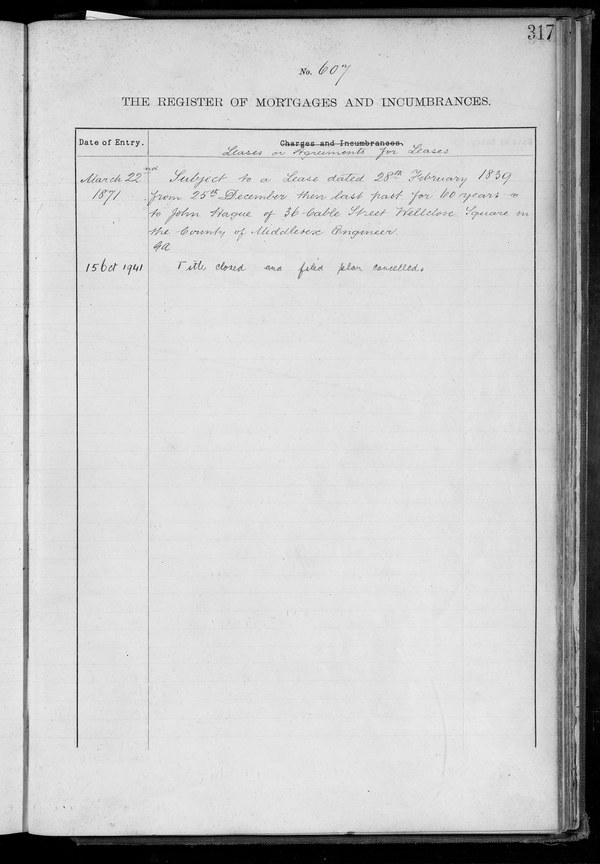 317
No. 607
THE REGISTER OF MORTGAGES AND INCUMBRANCES.
Date of Entry.
Charges and Incumbrances.
Leases or Agreements for Leases
March 22nd 1871
Subject to a Lease dated 28th February 1839
from 25th December then last past for 60 years
to John Hague of 36 Cable Street Wellclose Square in
the County of Middlesex Engineer.
15 Oct 1941
Title closed and filed plan cancelled.